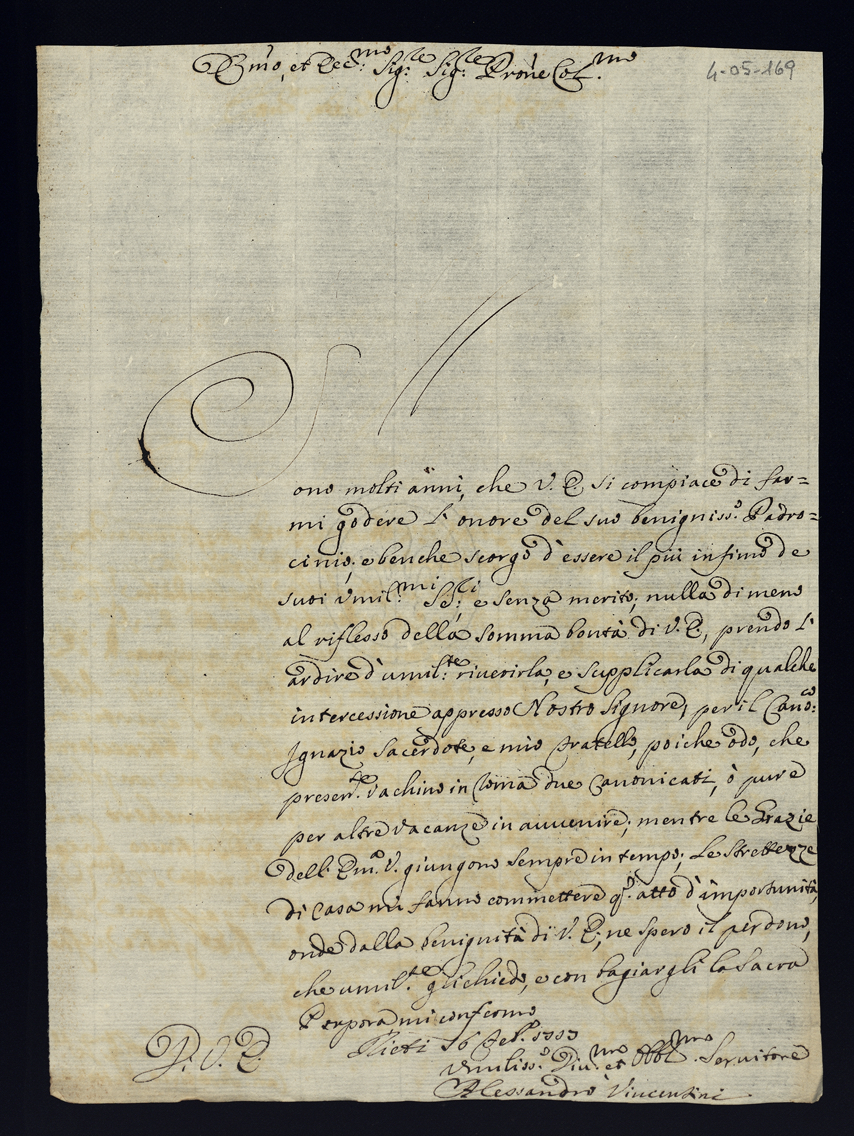 4-05-169
Em̃o, et Rec.mo Sig.re Sig.re Pròne Col.mo
Sono molti anni, che V. E. si compiace di far=
mi godere l'onore del suo benigniss.o Padro=
cinio; e benche scorgo d'essere il più infimo de
suoi umil.mi Se.ri; e senza merito; nulla di meno
al riflesso della somma bontà di V. E., prendo l'
ardire d'umil.te riverirla, e supplicarla di qualche
intercessione appresso Nostro Signore, per il Cano.co
Ignazio Sacerdote, e mio fratello, poiche odo, che
presen.te vachino in Roma due Canonicati, ò pure
per altre vacanze in avvenire; mentre le Grazie
dell' Em.a V. giungono sempre in tempo; Le strettezze
di Casa mi fanno commettere q.to atto d'importunità,
onde dalla benignità di V. E., ne spero il perdono,
che umil.te gli chiedo, e con bagiargli la Sacra
Porpora mi confermo
Rieti 16 Feb.o
D. V. E.
Umiliss.o Div.mo et Obbl.mo Servitore
Alessandro Vincentini